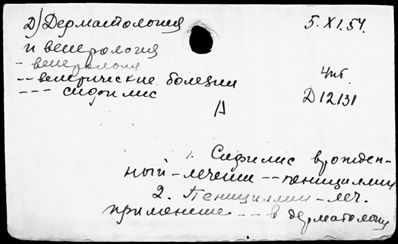 Д) Дерматология 5.XI.54.
и венерология
- венерология
-- венерические болезни чит.
--- сифилис Д12131
А
1. Сифилис врожден-
ный - лечение -- пенициллин
2. Пенициллин - леч.
применение -- в дерматологии